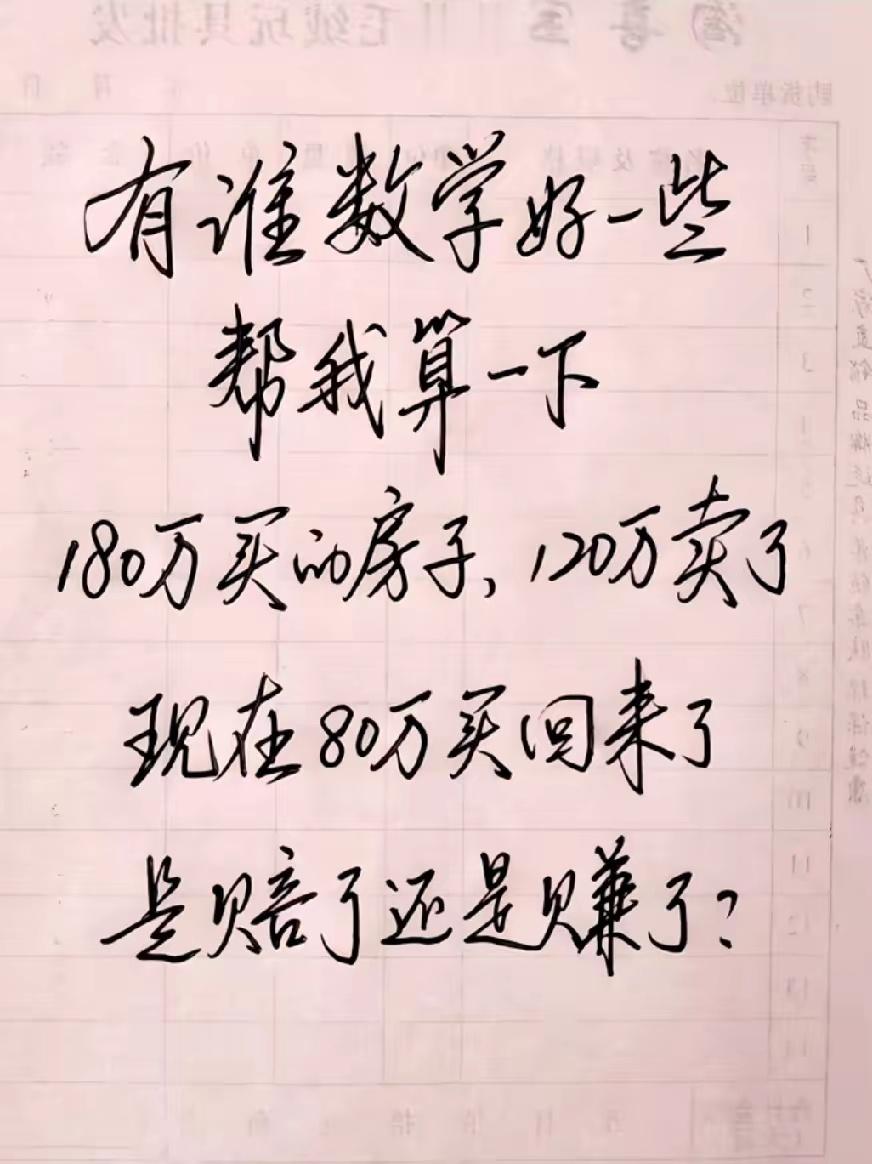 有谁数学好一些
帮我算一下
180万买的房子，120万卖了
现在80万买回来了
是赔了还是赚了？